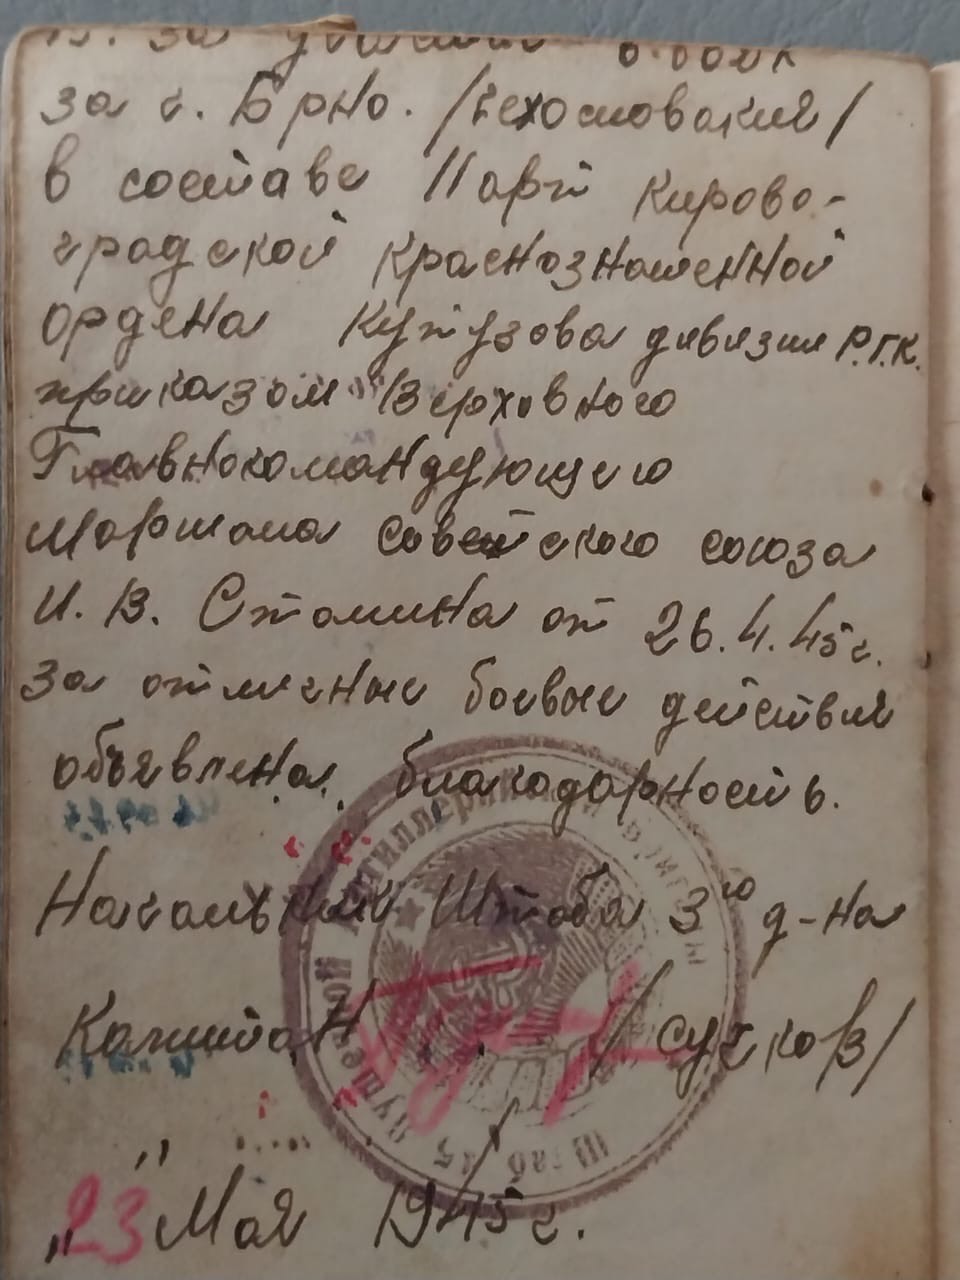 за участие в боях
за г. Брно. /Чехословакия/
в составе 11 арт Кирово-
градской Краснознаменной
ордена Кутузова дивизии Р.Г.К.
приказом Верховного
Главнокомандующего
Маршала советского союза
И. В. Сталина от 26.4.45 г.
за отличные боевые действия
объявлена благодарность.
Начальник Штаба 3го д-на
Капитан /Сучков/
"23" Мая 1945 г.
Штаб пушечной артиллерийской бригады